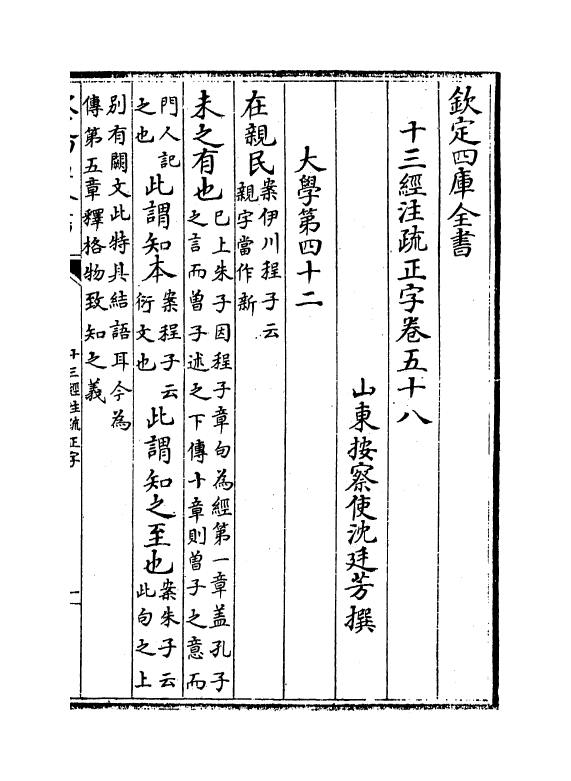 欽定四庫全書
十三經注疏正字卷五十八
山東按察使沈廷芳撰
大學第四十二
在親民案伊川程子云
親字當作新
未之有也已上朱子因程子章句為經第一章蓋孔子
之言而曾子述之下傳十章則曾子之意而
門人記
之也此謂知本案程子云
衍文也此謂知之至也案朱子云
此句之上
別有闕文此特具結語耳今為
傳第五章釋格物致知之義
十三經注疏正字
一